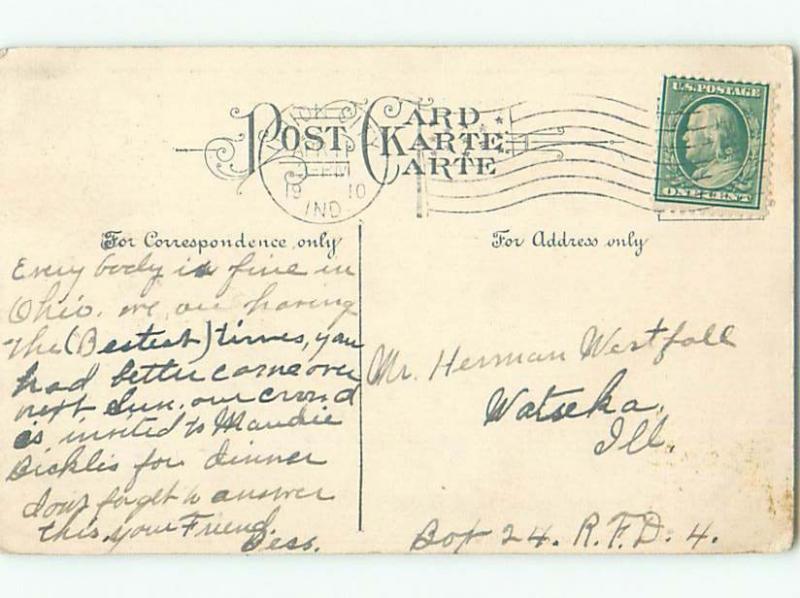 POST CARD
KARTE
CARTE
U.S. POSTAGE
ONE CENT
PM
19 10
IND
For Correspondence only
For Address only
Every body is fine in
Ohio. we are having
the (Bestest) times, you
had better come over
next Sun. our crowd
is invited to Maudie
for dinner
dont forget to answer
this. your Friend.
Bess.
Mr. Herman Westfall
Watseka,
Ill.
Box 24. R.F.D. 4.